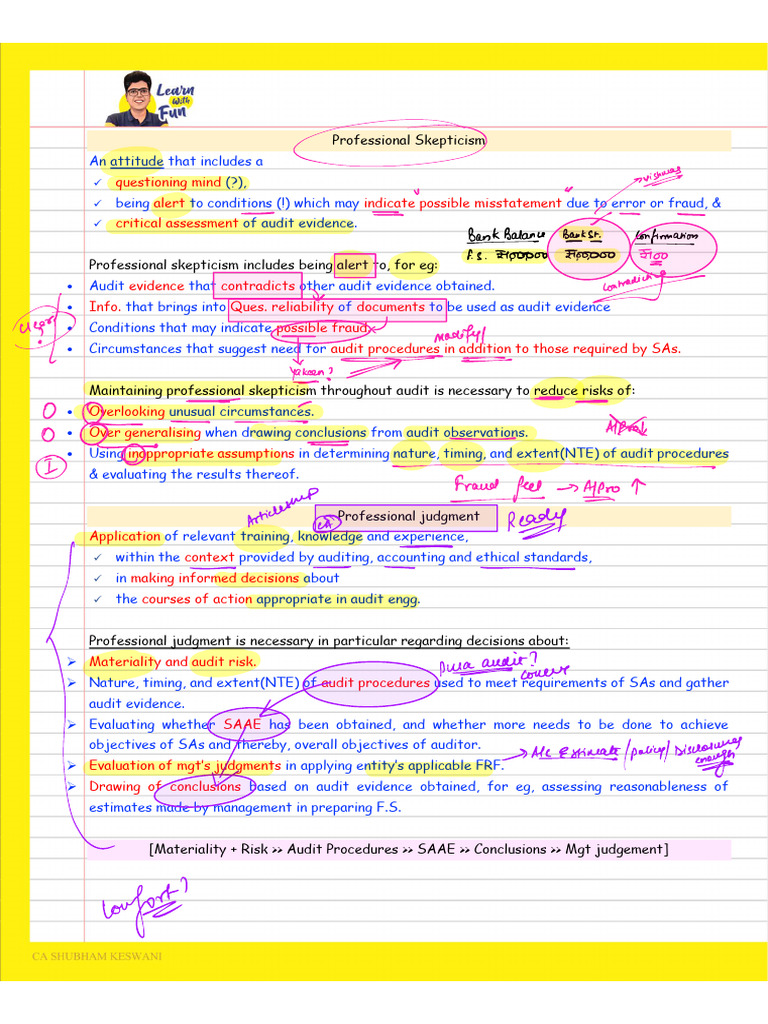 Learn
With
Fun
Professional Skepticism
An attitude that includes a
✓ questioning mind (?),
✓ being alert to conditions (!) which may indicate possible misstatement due to error or fraud, &
✓ critical assessment of audit evidence.
vishwas
Bank Balance Bank St. Confirmation
F.S. ₹100,000 ₹100,000 ₹100
Professional skepticism includes being alert to, for eg:
• Audit evidence that contradicts other audit evidence obtained.
contradict
• Info. that brings into Ques. reliability of documents to be used as audit evidence
• Conditions that may indicate possible fraud.
Modify/
• Circumstances that suggest need for audit procedures in addition to those required by SAs.
Yakeen?
Maintaining professional skepticism throughout audit is necessary to reduce risks of:
O • Overlooking unusual circumstances.
O • Over generalising when drawing conclusions from audit observations.
I • Using inappropriate assumptions in determining nature, timing, and extent(NTE) of audit procedures
& evaluating the results thereof.
Fraud feel → A/Pro ↑
Articleship
CA
Professional judgment
Ready
Application of relevant training, knowledge and experience,
✓ within the context provided by auditing, accounting and ethical standards,
✓ in making informed decisions about
✓ the courses of action appropriate in audit engg.
Professional judgment is necessary in particular regarding decisions about:
➢ Materiality and audit risk.
audit?
➢ Nature, timing, and extent(NTE) of audit procedures used to meet requirements of SAs and gather
audit evidence.
➢ Evaluating whether SAAE has been obtained, and whether more needs to be done to achieve
objectives of SAs and thereby, overall objectives of auditor.
➢ Evaluation of mgt's judgments in applying entity's applicable FRF.
→ A/c Estimate/policy/Disclosures
enough
➢ Drawing of conclusions based on audit evidence obtained, for eg, assessing reasonableness of
estimates made by management in preparing F.S.
[Materiality + Risk >> Audit Procedures >> SAAE >> Conclusions >> Mgt judgement]
Comfort?
CA SHUBHAM KESWANI